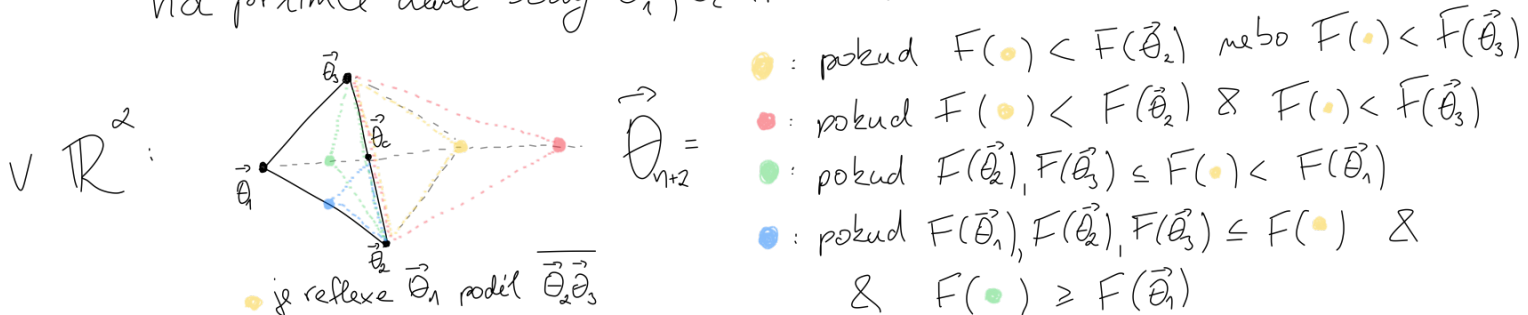 v ℝ² :
θ⃗₃
θ⃗c
θ⃗₁
θ⃗₂
je reflexe θ⃗₁ podél θ⃗₂θ⃗₃
θ⃗ₙ₊₂ =
: pokud F(•) < F(θ⃗₂) nebo F(•) < F(θ⃗₃)
: pokud F(•) < F(θ⃗₂) & F(•) < F(θ⃗₃)
: pokud F(θ⃗₂), F(θ⃗₃) ≤ F(•) < F(θ⃗₁)
: pokud F(θ⃗₁), F(θ⃗₂), F(θ⃗₃) ≤ F(•) &
& F(•) ≥ F(θ⃗₁)